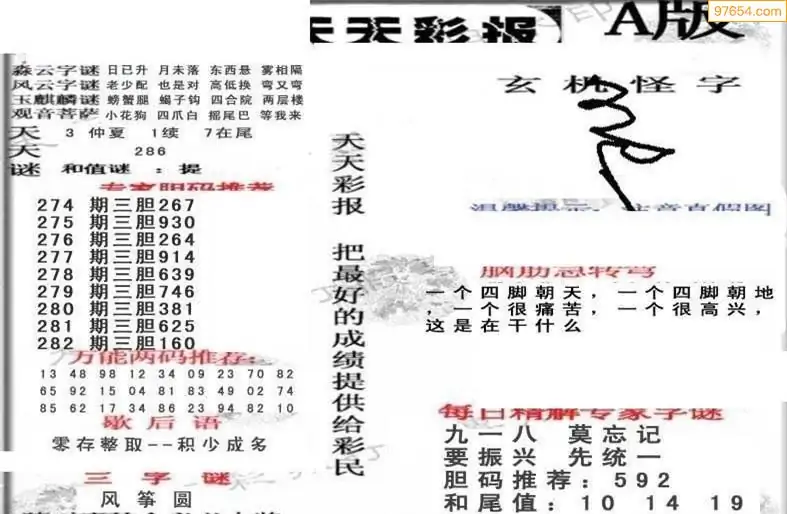 97654.com
天天彩报
A版
森云字谜 日已升 月未落 东西悬 雾相隔
风云字谜 老少配 也是对 高低换 弯又弯
玉麒麟谜 螃蟹腿 蝎子钩 四合院 两层楼
观音菩萨 小花狗 四爪白 摇尾巴 等我来
天 3 仲夏 1续 7在尾
天 286
谜 和值谜 : 提
专家胆码推荐
274 期三胆267
275 期三胆930
276 期三胆264
277 期三胆914
278 期三胆639
279 期三胆746
280 期三胆381
281 期三胆625
282 期三胆160
万能两码推荐:
13 48 98 12 34 09 23 70 82
65 92 15 04 81 83 49 02 74
85 62 17 34 86 23 94 82 10
歇后语
零存整取--积少成多
三字谜
风筝圆
天天彩报 把最好的成绩提供给彩民
玄机怪字
温馨提示: 注意真假图
脑筋急转弯
一个四脚朝天，一个四脚朝地
，一个很痛苦，一个很高兴，
这是在干什么
每日精解专家字谜
九一八 莫忘记
要振兴 先统一
胆码推荐: 592
和尾值: 10 14 19